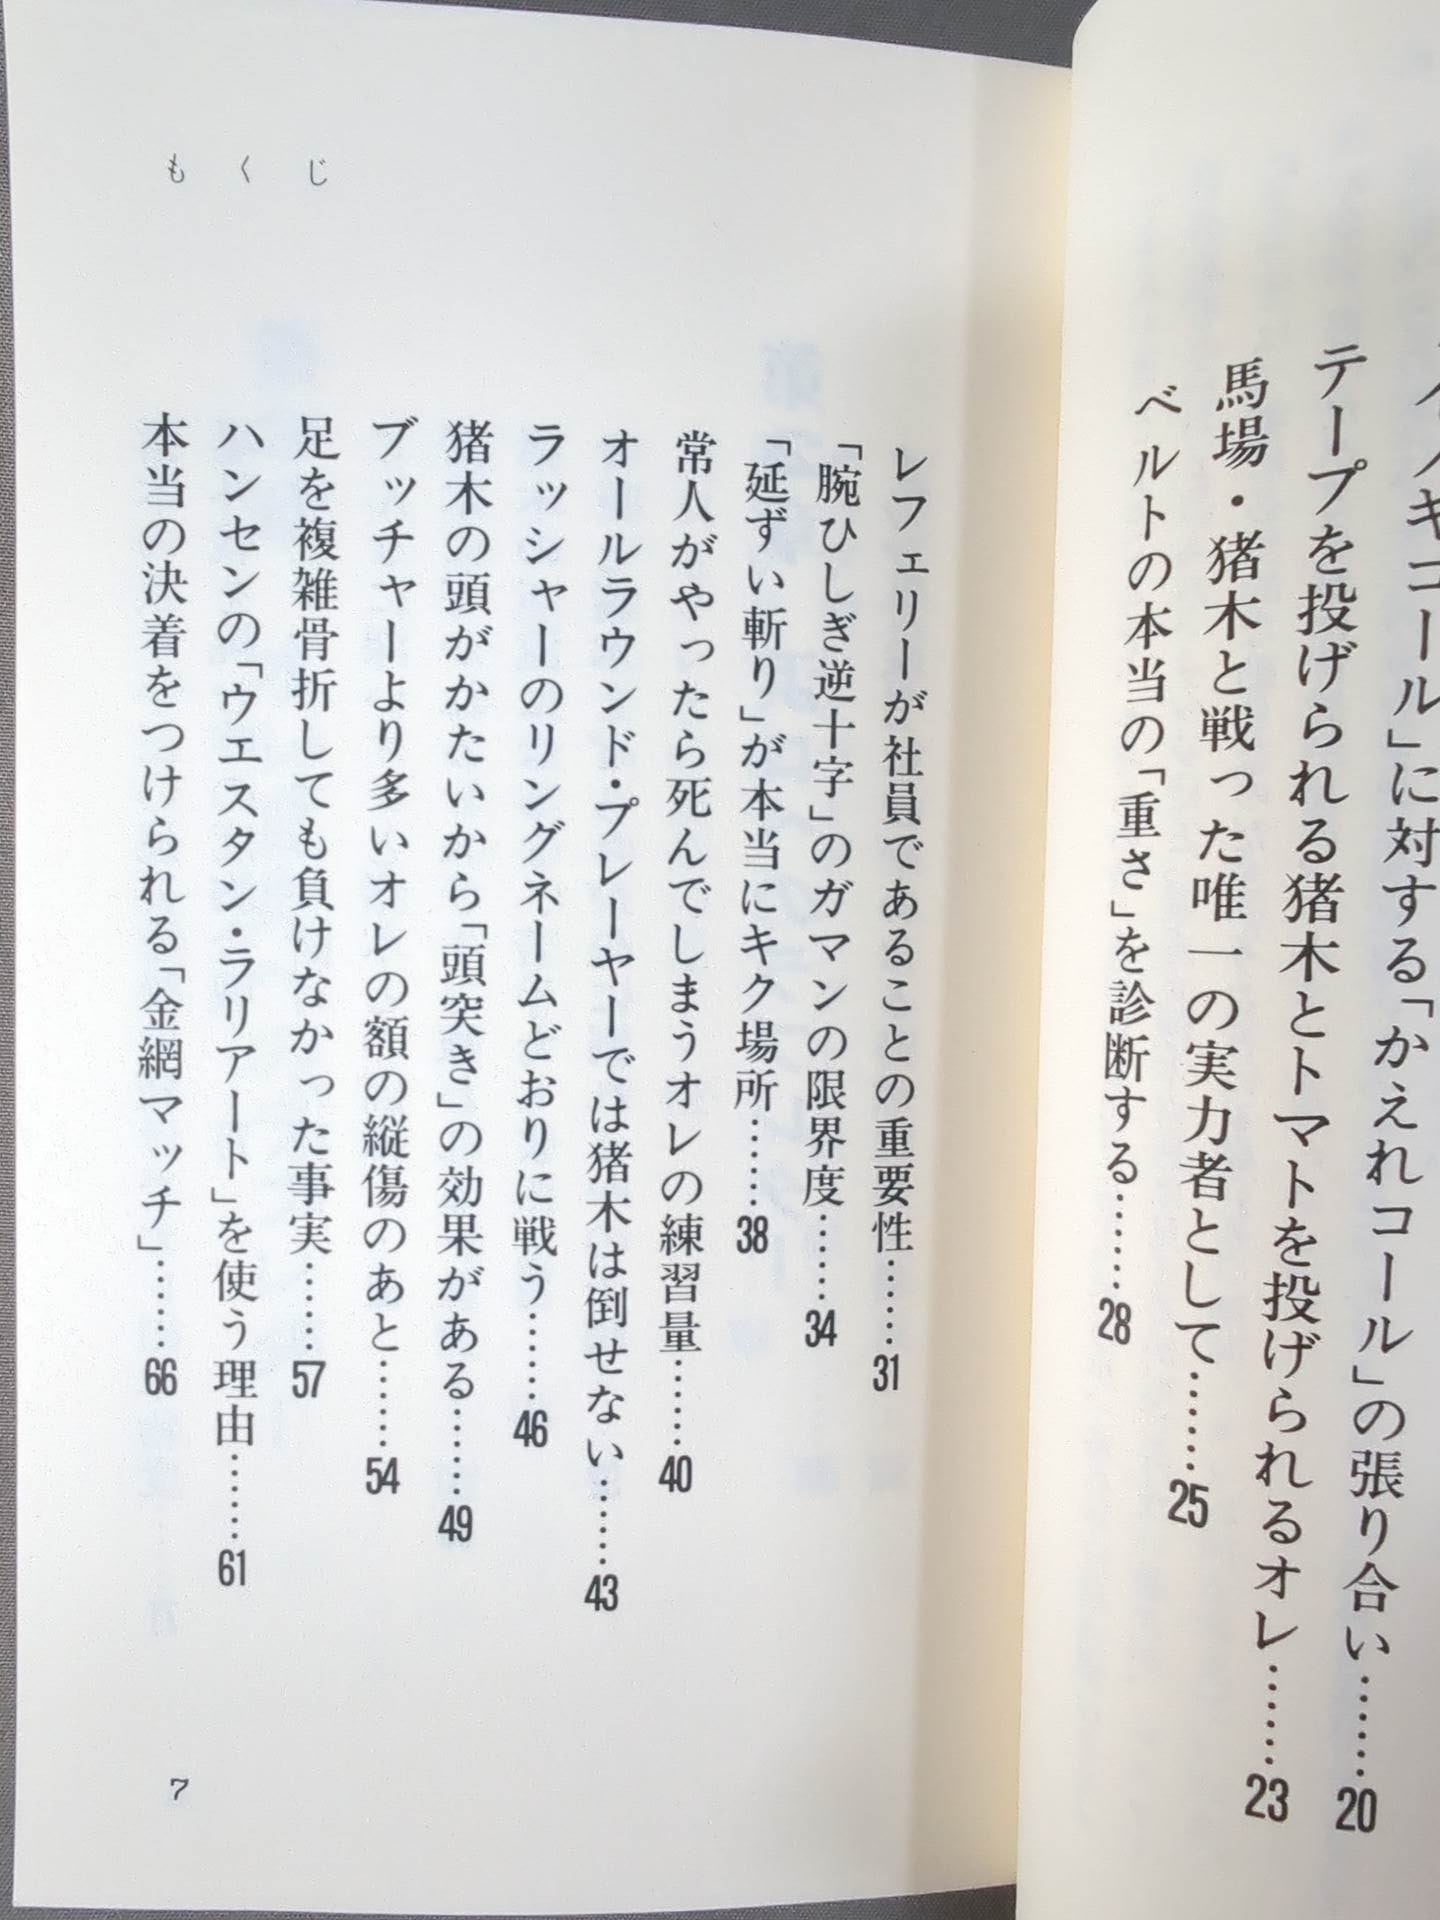 キコール」に対する「かえれコール」の張り合い……20
テープを投げられる猪木とトマトを投げられるオレ……23
馬場・猪木と戦った唯一の実力者として……25
ベルトの本当の「重さ」を診断する……28
もくじ
レフェリーが社員であることの重要性……31
「腕ひしぎ逆十字」のガマンの限界度……34
「延ずい斬り」が本当にキク場所……38
常人がやったら死んでしまうオレの練習量……40
オールラウンド・プレーヤーでは猪木は倒せない……43
ラッシャーのリングネームどおりに戦う……46
猪木の頭がかたいから「頭突き」の効果がある……49
ブッチャーより多いオレの額の縦傷のあと……54
足を複雑骨折しても負けなかった事実……57
ハンセンの「ウエスタン・ラリアート」を使う理由……61
本当の決着をつけられる「金網マッチ」……66
7